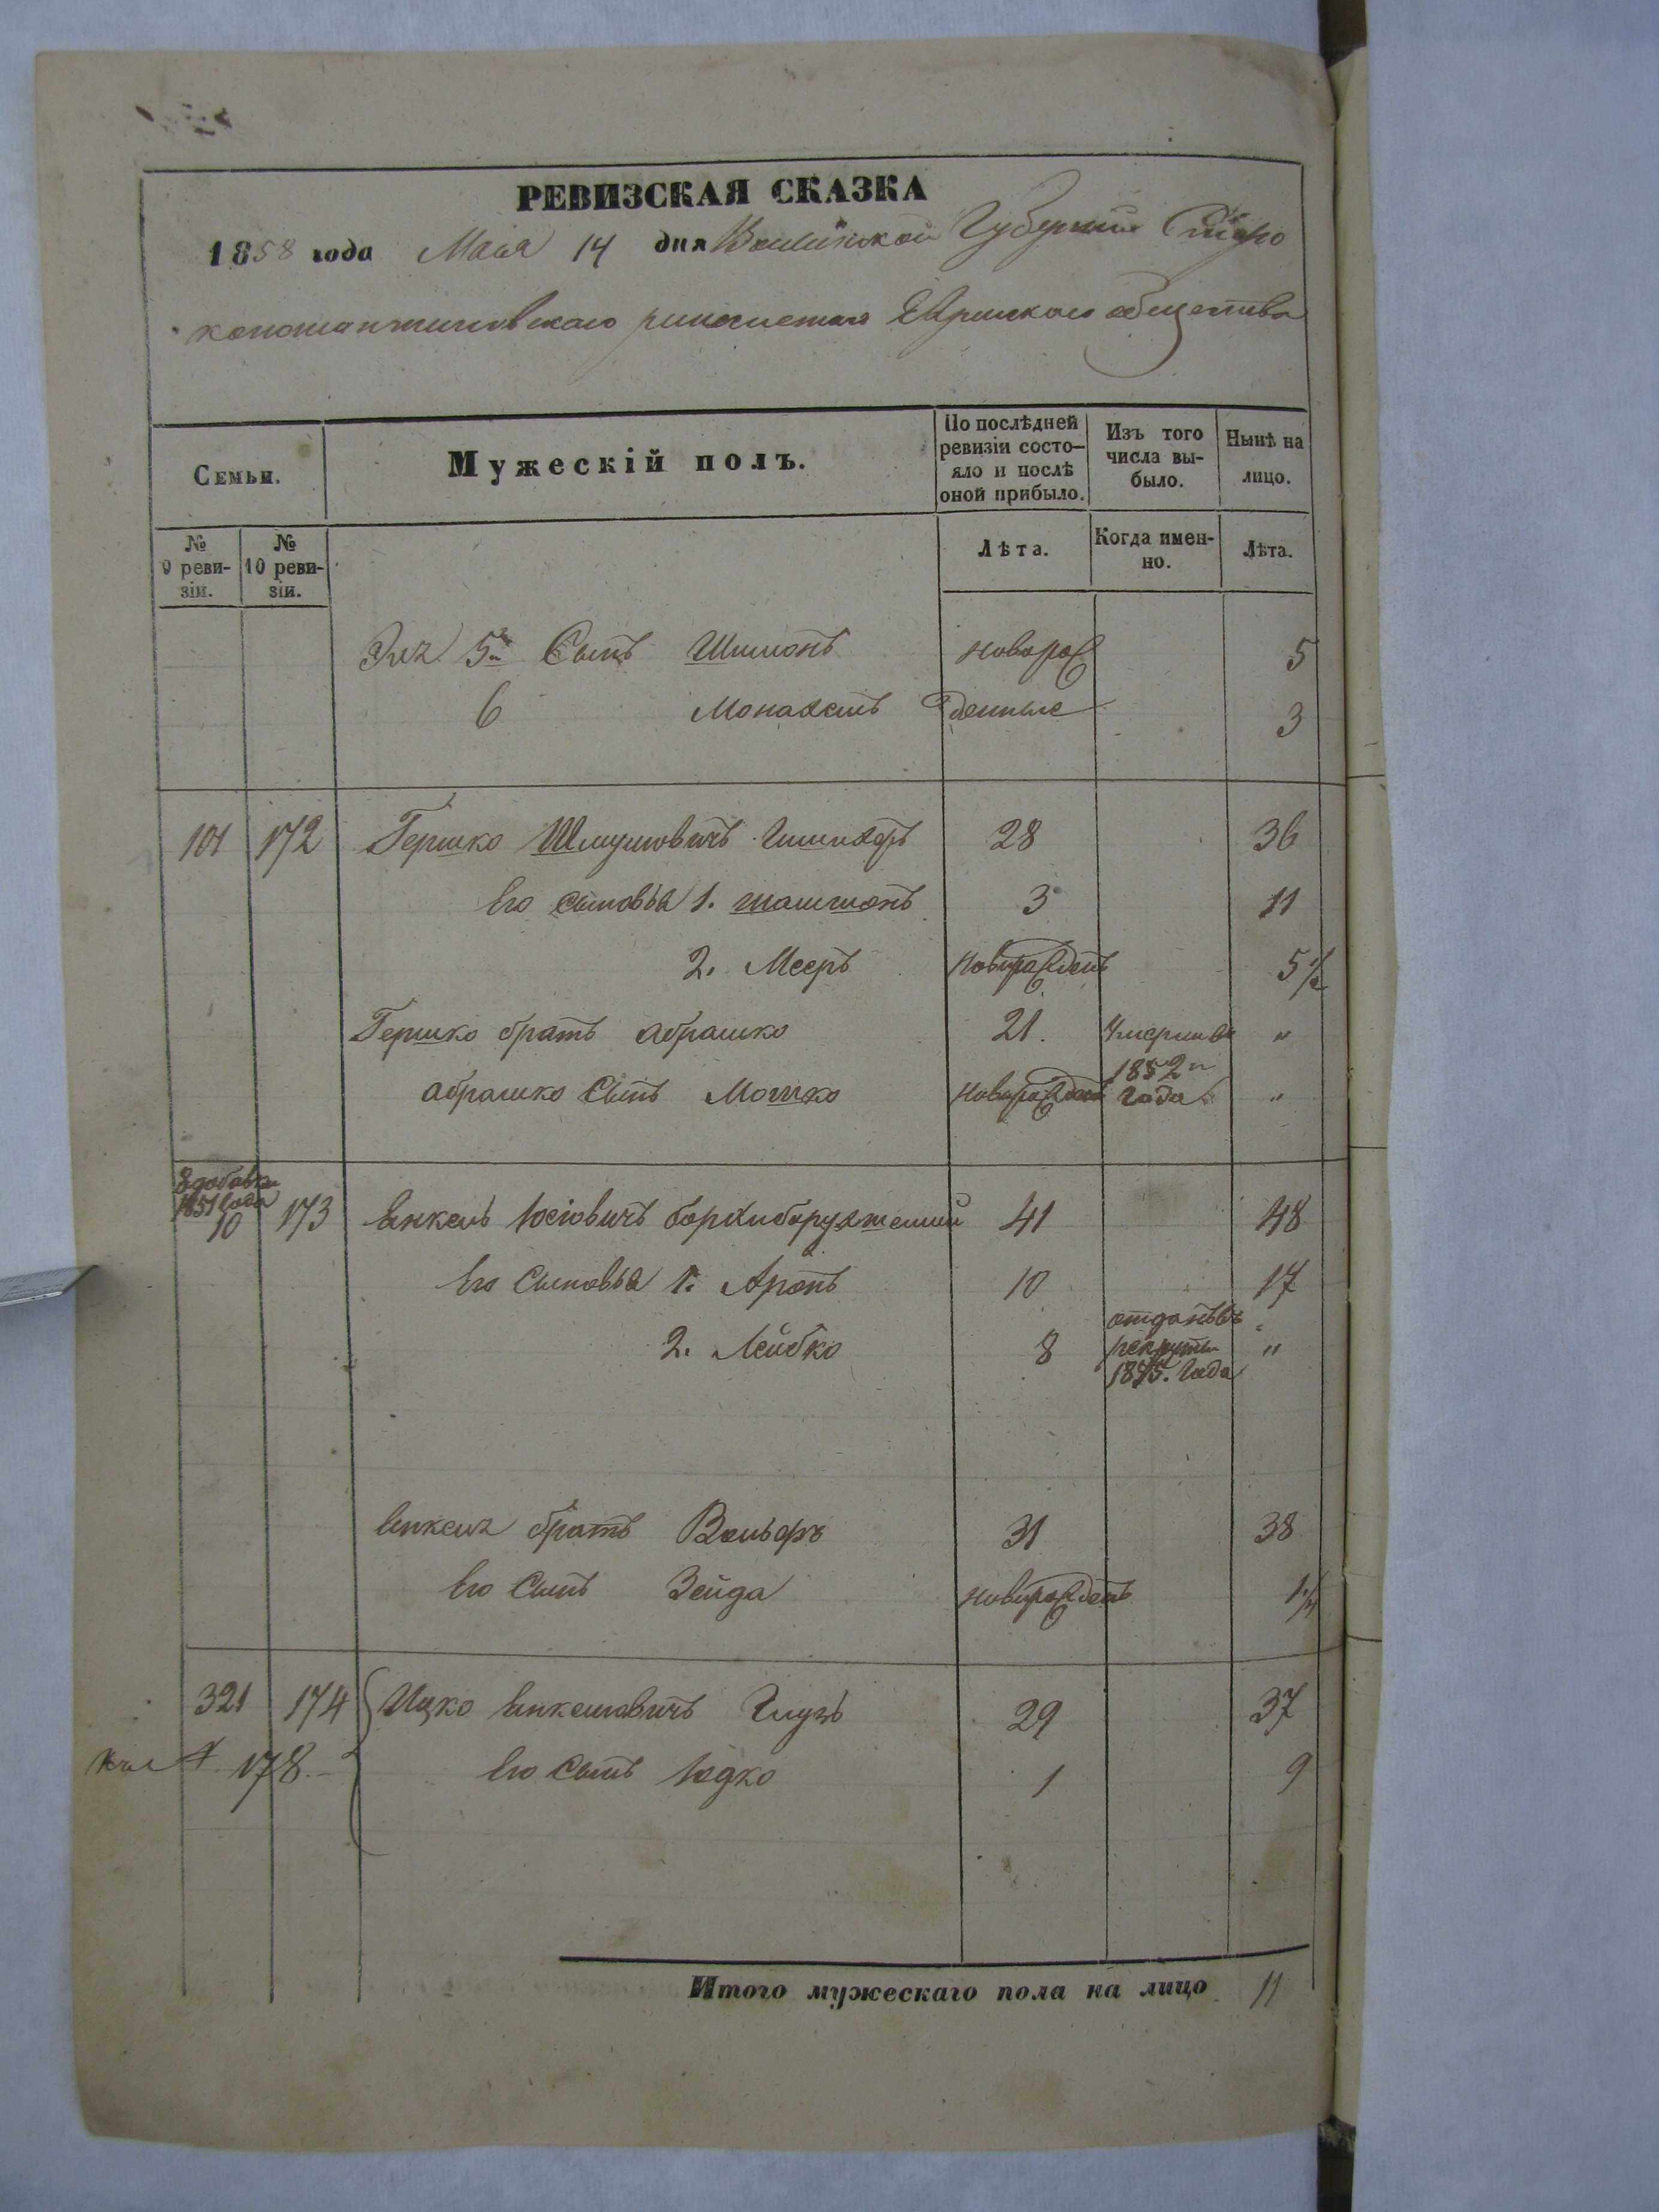 РЕВИЗСКАЯ СКАЗКА
1858 года Маія 14 дня Волынской Губерніи Старо
константиновскаго Еврейскаго общества
Семьи.
Мужескій полъ.
По послѣдней ревизіи состо-яло и послѣ оной прибыло.
Изъ того числа вы-было.
Нынѣ на лицо.
№ 9 реви-зіи.
№ 10 реви-зіи.
Лѣта.
Когда имен-но.
Лѣта.
5й Сынъ Шимонъ новорож 5
6 Монахемъ денные 3
101 172 Гершко Шмулювичъ 28 36
Его сыновья 1. Шашшонъ 3 11
2. Мееръ Новорожденъ 5 1/2
Гершко братъ Абрашко 21. Умерши въ "
Абрашко Сынъ Мошко Новорожденъ 1852м Года "
1851 года
10 173 Янкель Юсіовичъ 41 48
Его Сыновья 1. Аронъ 10 17
2. Лейбко 8 отданъ въ рекруты 1855. Года "
Янкеля братъ Вольфъ 31 38
Его Сынъ Зейда новорожденъ 1 1/4
321 174 Ицко Янкелювичъ Глузъ 29 37
178. Его Сынъ Юдко 1 9
Итого мужескаго пола на лицо 11